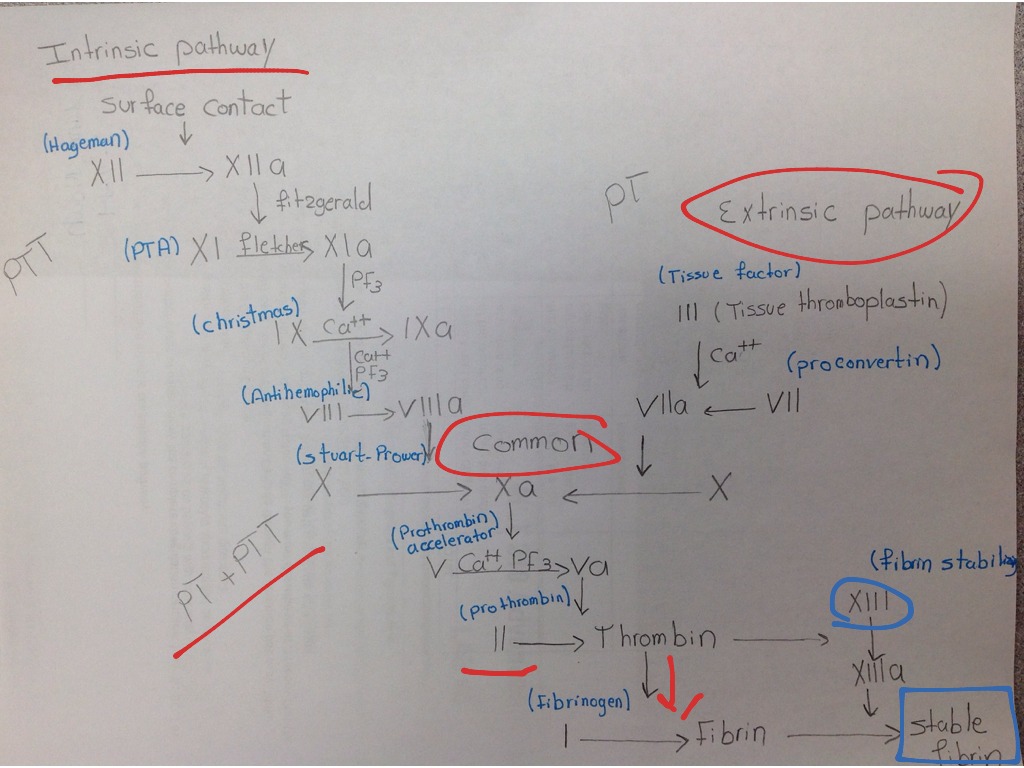 Intrinsic pathway
surface contact
(Hageman)
XII → XIIa
fitzgerald
PT
Extrinsic pathway
PTT
(PTA) XI fletcher XIa
PF3
(Tissue factor)
III (Tissue thromboplastin)
(christmas)
IX Ca++ IXa
Ca++
PF3
Ca++
(proconvertin)
(Antihemophilic)
VIII → VIIIa
VIIa ← VII
common
(stuart-Prower)
X → Xa ← X
(Prothrombin
accelerator)
V Ca++, PF3 → Va
PT + PTT
(fibrin
(prothrombin)
XIII
II → Thrombin →
XIIIa
(Fibrinogen)
I → Fibrin →
stable
fibrin